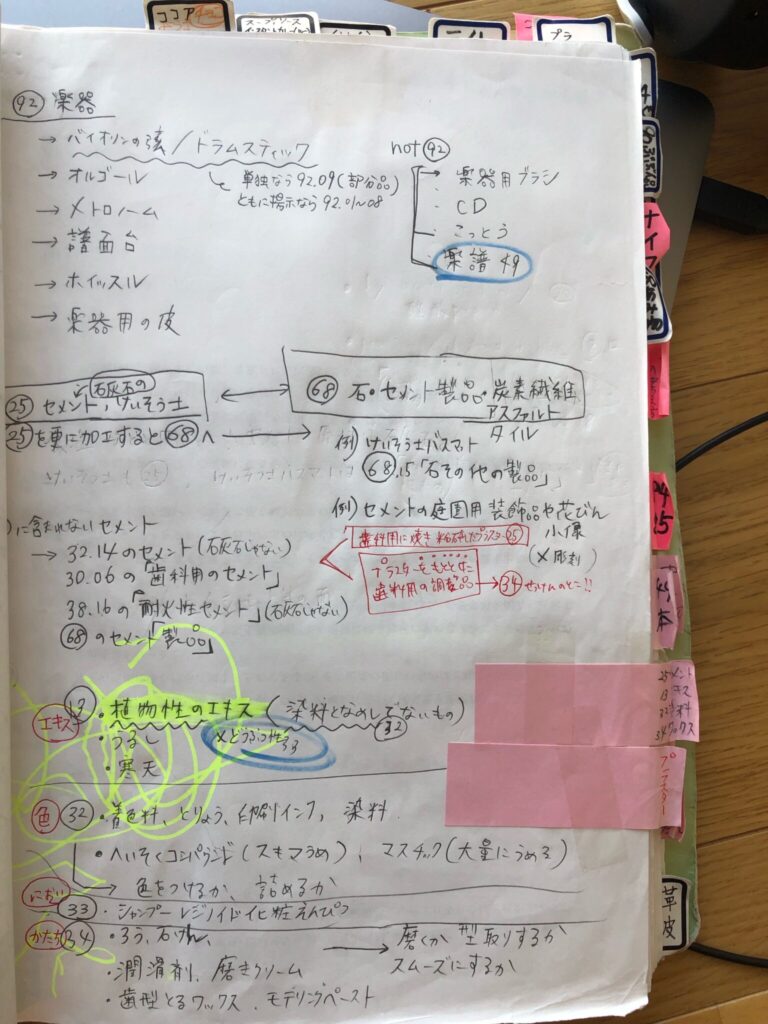 ココア
スープ、ソース
プラ
ナイフ
㉜ 楽器
→ バイオリンの弦 / ドラムスティック
単独なら 92.09 (部分品)
ともに提示なら 92.01~08
→ オルゴール
→ メトロノーム
→ 譜面台
→ ホイッスル
→ 楽器用の皮
not 92
楽器用ブラシ
CD
こっとう
楽譜 49
石灰石の
25 セメント, けいそう土
68 石・セメント製品・炭素繊維
アスファルト
25を更に加工すると68へ
例) けいそう土バスマット
タイル
68.15「石その他の製品」
例) セメントの庭園用装飾品や花びん
小像
(×彫刻)
に含まれないセメント
→ 32.14のセメント (石灰石じゃない)
30.06の「歯科用のセメント」
38.16の「耐火性セメント」(石灰石じゃない)
68のセメント「製品」
歯科用に焼き粉砕したプラスター 25
プラスターをもととした
歯科用の調製品 → 34 せっけんのとこ!!
エキス 13 ・植物性のエキス (染料となめしでないもの)
32
・うるし
×どうぶつ性 33
・寒天
25メント
13エキス
32染料
34ワックス
プラスター
色 32 ・着色料、とりょう、印刷インク, 染料
・へいそくコンパウンド (スキマうめ)、マスチック (大量にうめる)
→ 色をつけるか、詰めるか
におい 33 ・シャンプー レジノイド 化粧えんぴつ
かたち 34 ・ろう、石けん、
→ 磨くか 型取りするか
スムーズにするか
・潤滑剤、磨きクリーム
・歯型とるワックス、モデリングペースト
49
本
革皮